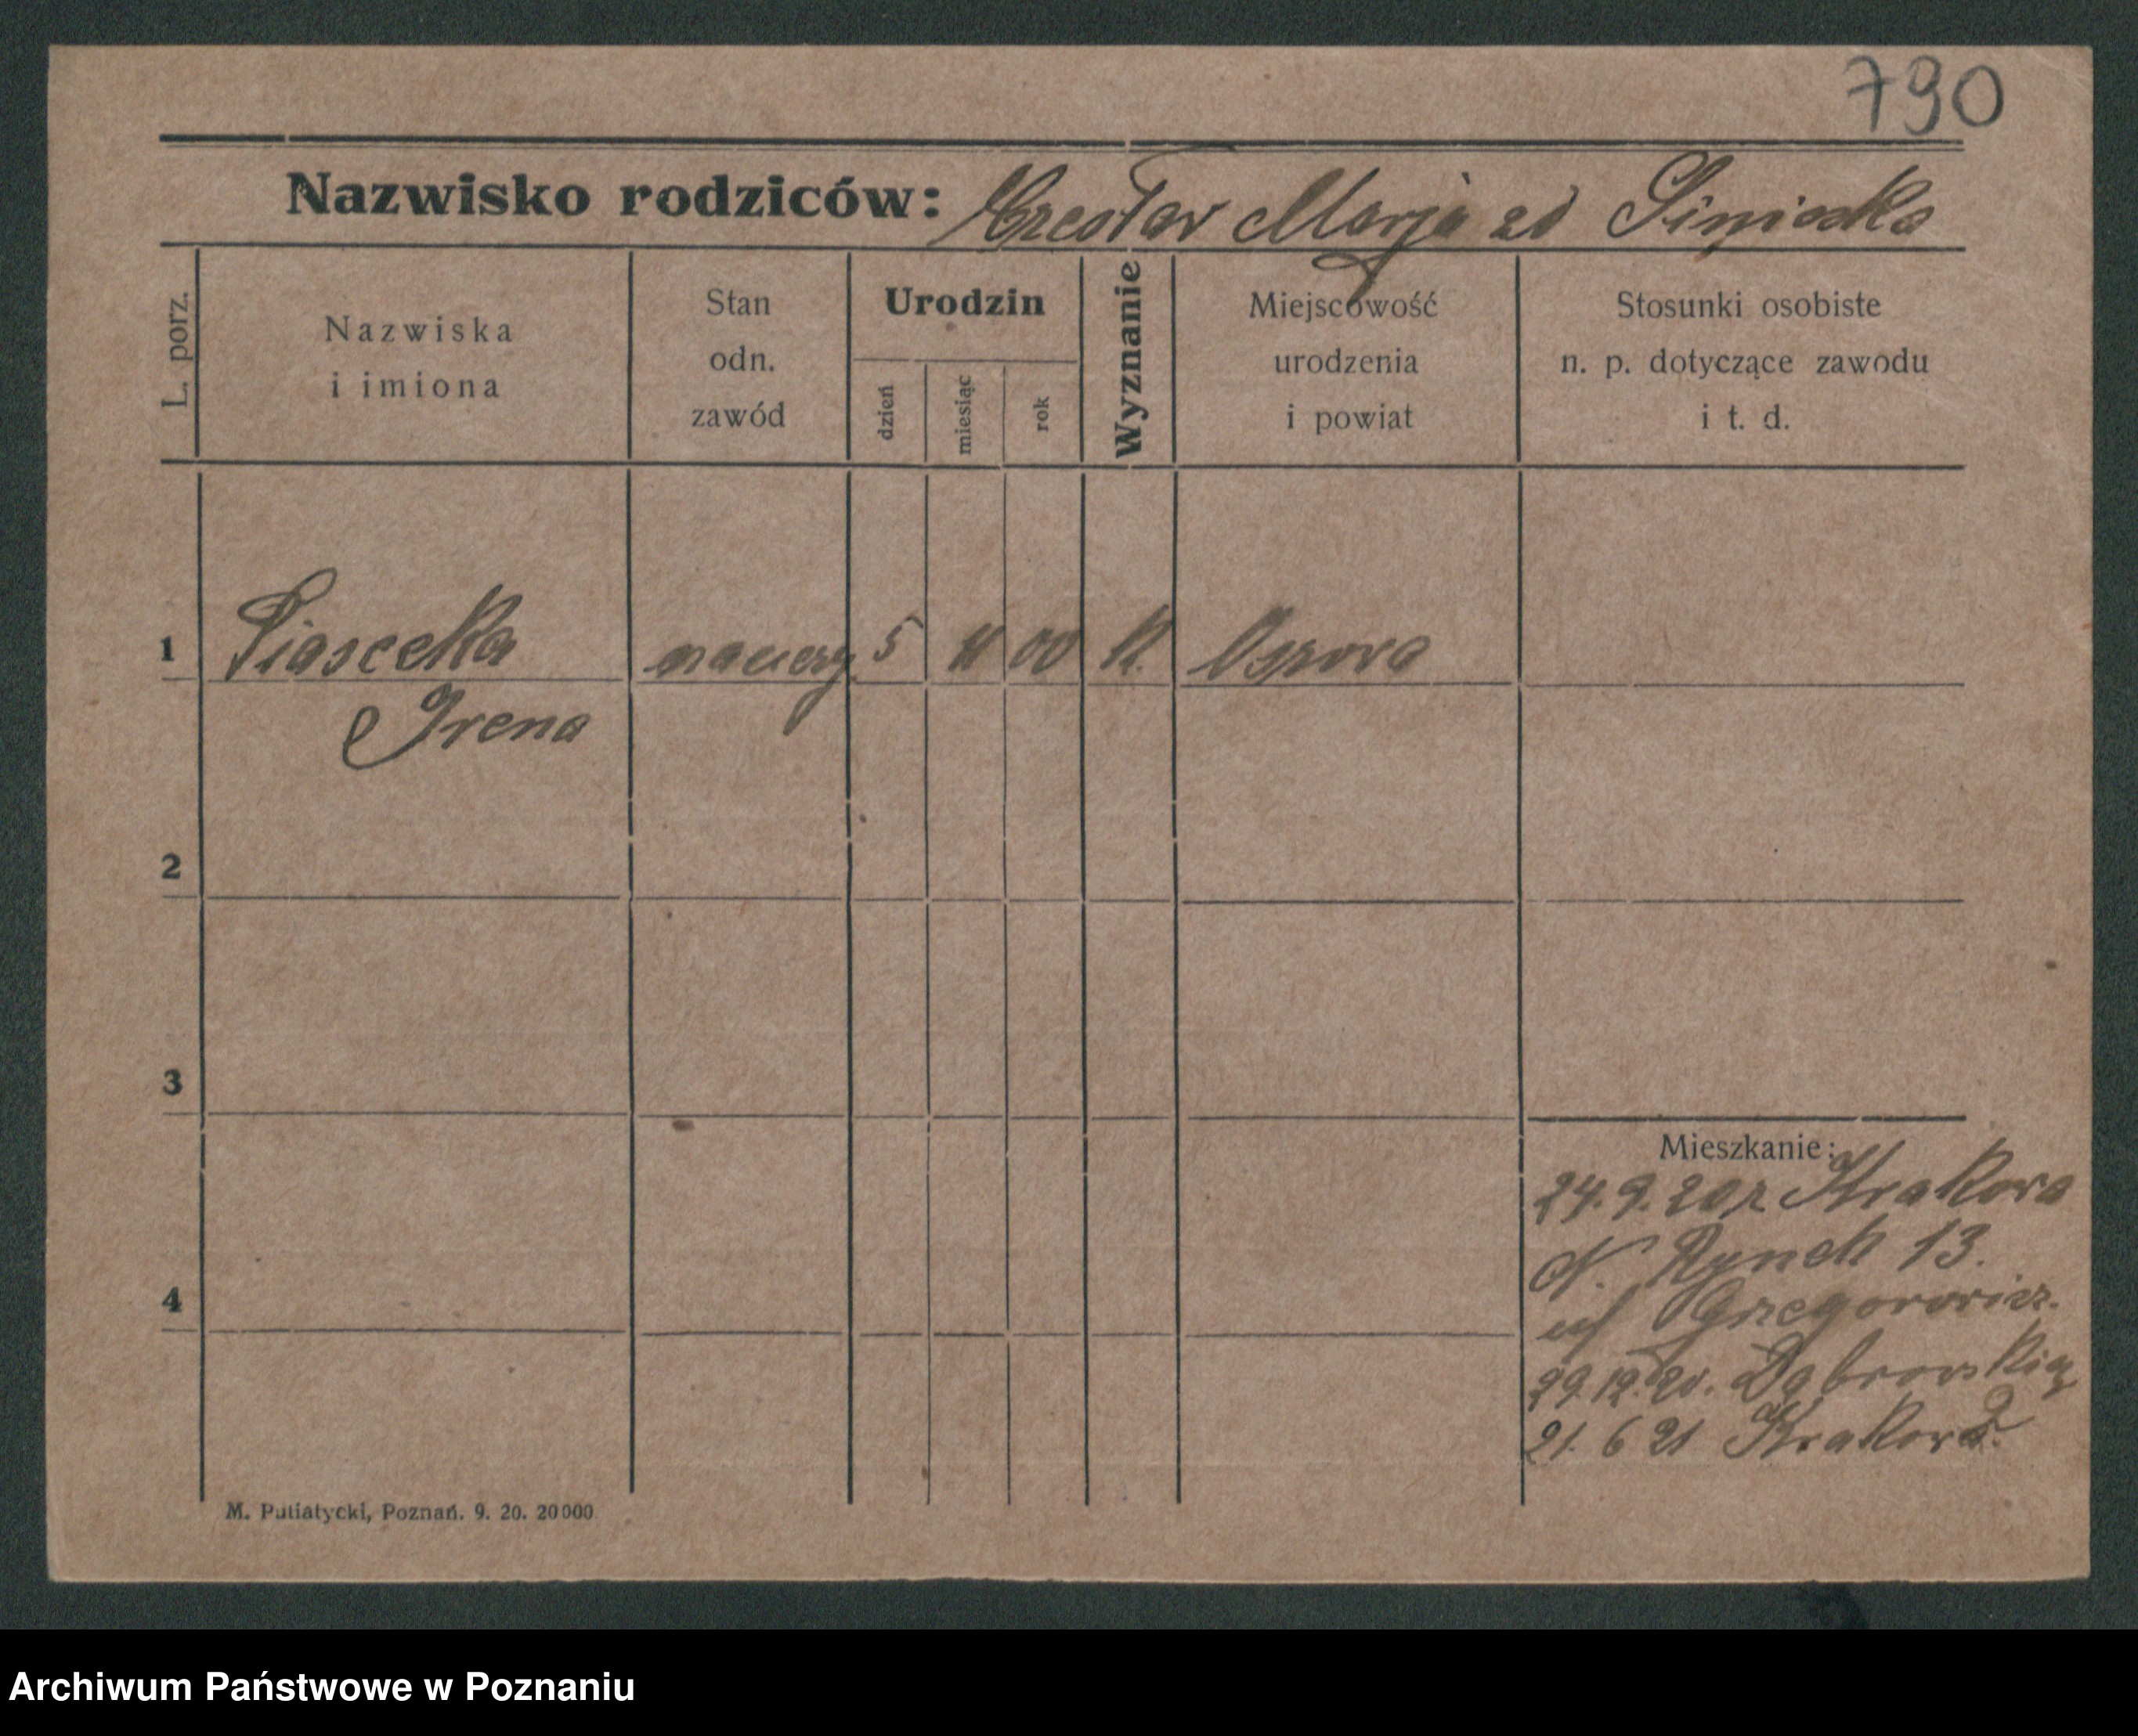 790
Nazwisko rodziców: Czesław Marja zd
L. porz.
Nazwiska
i imiona
Stan
odn.
zawód
Urodzin
dzień
miesiąc
rok
Wyznanie
Miejscowość
urodzenia
i powiat
Stosunki osobiste
n. p. dotyczące zawodu
i t. d.
1
Piascecka 5 00 K.
Irena
2
3
4
Mieszkanie:
24.9.20 r Krakowa
N. Rynek 13.
29.12.20. Dąbrowskią
21. 6 21 Krakowa
M. Putiatycki, Poznań. 9. 20. 20000
Archiwum Państwowe w Poznaniu